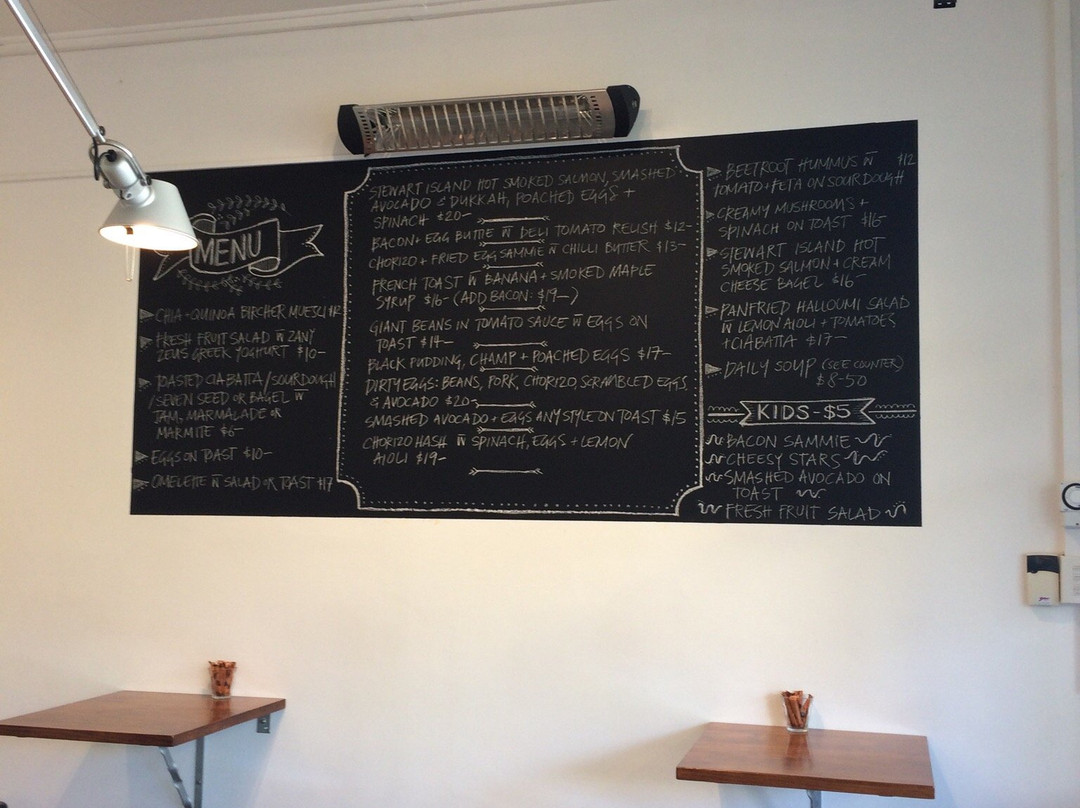 MENU
CHIA + QUINOA BIRCHER MUESLI $12
FRESH FRUIT SALAD w̄ ZANY
ZEUS GREEK YOGHURT $10-
TOASTED CIABATTA/SOURDOUGH
/SEVEN SEED OR BAGEL w̄
JAM, MARMALADE OR
MARMITE $6-
EGGS ON TOAST $10-
OMELETTE w̄ SALAD OR TOAST $17
STEWART ISLAND HOT SMOKED SALMON, SMASHED
AVOCADO & DUKKAH, POACHED EGGS +
SPINACH $20-
BACON + EGG BUTTIE w̄ DELI TOMATO RELISH $12-
CHORIZO + FRIED EGG SAMMIE w̄ CHILLI BUTTER $13-
FRENCH TOAST w̄ BANANA + SMOKED MAPLE
SYRUP $16- (ADD BACON: $19-)
GIANT BEANS IN TOMATO SAUCE w̄ EGGS ON
TOAST $14-
BLACK PUDDING, CHAMP + POACHED EGGS $17-
DIRTY EGGS: BEANS, PORK, CHORIZO, SCRAMBLED EGGS
& AVOCADO $20-
SMASHED AVOCADO + EGGS ANY STYLE ON TOAST $15
CHORIZO HASH w̄ SPINACH, EGGS + LEMON
AIOLI $19-
BEETROOT HUMMUS w̄ $12
TOMATO + FETA ON SOURDOUGH
CREAMY MUSHROOMS +
SPINACH ON TOAST $16-
STEWART ISLAND HOT
SMOKED SALMON + CREAM
CHEESE BAGEL $16-
PANFRIED HALLOUMI SALAD
w̄ LEMON AIOLI + TOMATOES
+ CIABATTA $17-
DAILY SOUP (SEE COUNTER)
$8-50
KIDS - $5
BACON SAMMIE
CHEESY STARS
SMASHED AVOCADO ON
TOAST
FRESH FRUIT SALAD